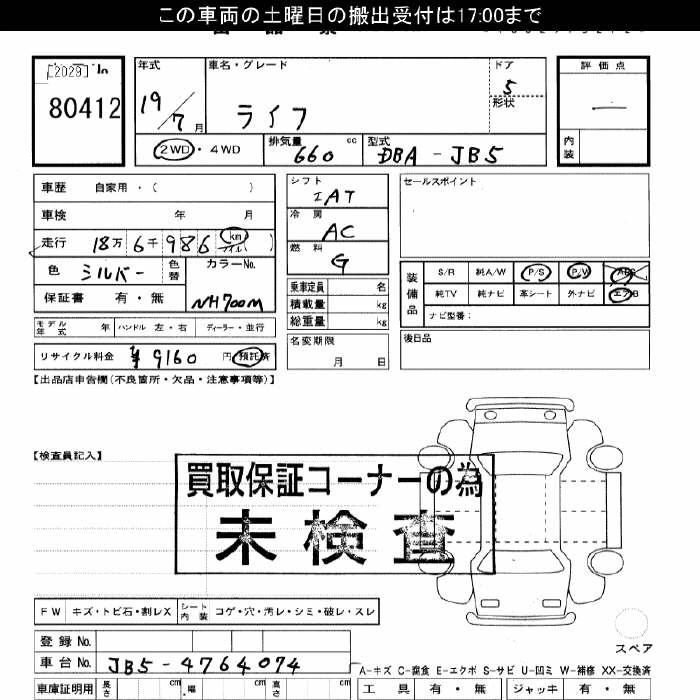 この車両の土曜日の搬出受付は17:00まで
[2029] In
80412
年式 車名・グレード ドア 評価点
19/7月 ライフ 5 形状 ―
2WD・4WD 排気量 660 cc 型式 DBA-JB5 内装
車歴 自家用・( )
車検 年 月
走行 18万6千986 km マイル( )
色 シルバー 色替 カラーNo. NH700M
保証書 有・無
モデル年式 年 ハンドル 左・右 ディーラー・並行
リサイクル料金 ¥9160円 預託済
シフト IAT
冷房 AC
燃料 G
乗車定員 名
積載量 kg
総重量 kg
名変期限 月 日
セールスポイント
装備品 S/R 純A/W P/S P/W ABS
純TV 純ナビ 革シート 外ナビ エアB
ナビ型番:
後日品
【出品店申告欄(不良箇所・欠品・注意事項等)】
【検査員記入】
買取保証コーナーの為
未検査
FW キズ・トビ石・割レX シート内装 コゲ・穴・汚レ・シミ・破レ・スレ
登録No.
車台No. JB5-4764074
車庫証明用 長さ cm 幅 cm 高さ cm
スペア
A-キズ C-腐食 E-エクボ S-サビ U-凹ミ W-補修 XX-交換済
工具 有・無 ジャッキ 有・無